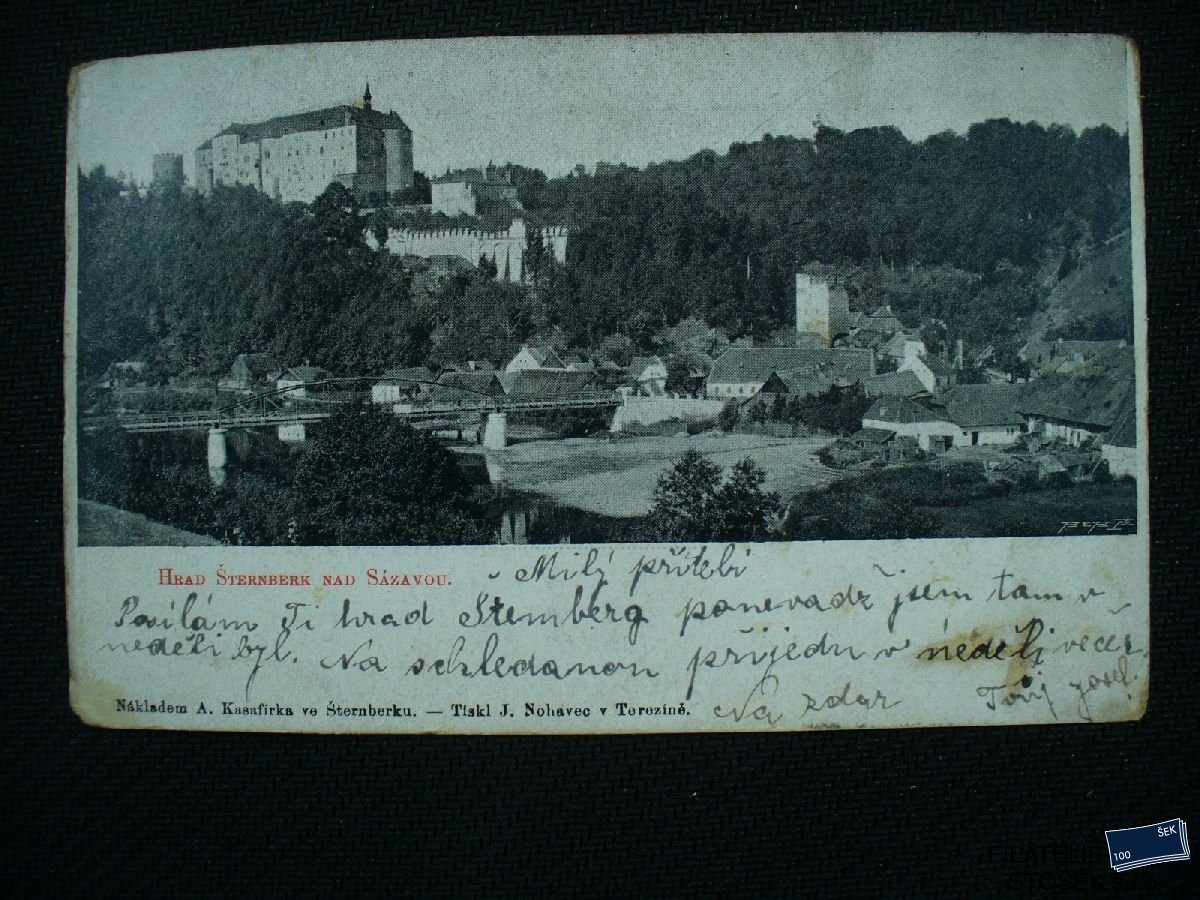 Hrad Šternberk nad Sázavou.
Milý příteli
Posílám Ti hrad Štemberg ponevadž jsem tam v
neděli byl. Na schledanou přijedu v neděli večer.
Nákladem A. Kasafirka ve Šternberku. — Tiskl J. Nohavec v Terezíně.
Na zdar Tvůj Josef.
FILATELIE
STOSEK s.r.o.
100 ŠEK